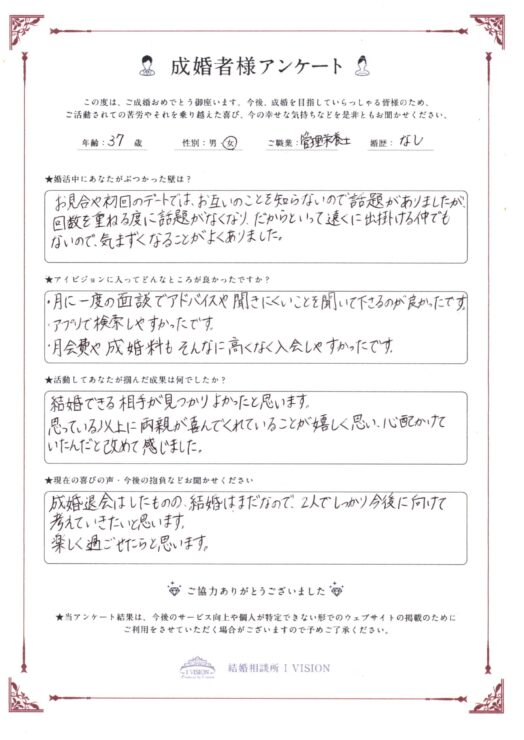 成婚者様アンケート
この度は、ご成婚おめでとう御座います。今後、成婚を目指していらっしゃる皆様のため、
ご活動されての苦労やそれを乗り越えた喜び、今の幸せな気持ちなどを是非ともお聞かせください。
年齢：37 歳 性別：男・女 ご職業：管理栄養士 婚歴：なし
★婚活中にあなたがぶつかった壁は？
お見合や初回のデートでは、お互いのことを知らないので話題がありましたが、
回数を重ねる度に話題がなくなり、だからといって遠くに出掛ける仲でも
ないので、気まずくなることがよくありました。
★アイビジョンに入ってどんなところが良かったですか？
・月に一度の面談でアドバイスや聞きにくいことを聞いて下さるのが良かったです。
・アプリで検索しやすかったです。
・月会費や成婚料もそんなに高くなく入会しやすかったです。
★活動してあなたが掴んだ成果は何でしたか？
結婚できる相手が見つかりよかったと思います。
思っている以上に両親が喜んでくれていることが嬉しく思い、心配かけて
いたんだと改めて感じました。
★現在の喜びの声・今後の抱負などお聞かせください
成婚退会はしたものの、結婚はまだなので、2人でしっかり今後に向けて
考えていきたいと思います。
楽しく過ごせたらと思います。
ご協力ありがとうございました
★当アンケート結果は、今後のサービス向上や個人が特定できない形でのウェブサイトの掲載のために
ご利用をさせていただく場合がございますので予めご了承ください。
I VISION
結婚相談所 I VISION